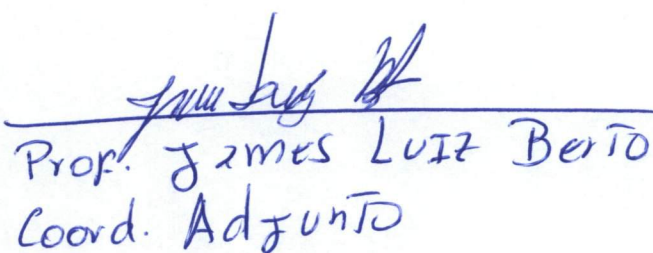 Prof. James Luiz Berto
Coord. Adjunto